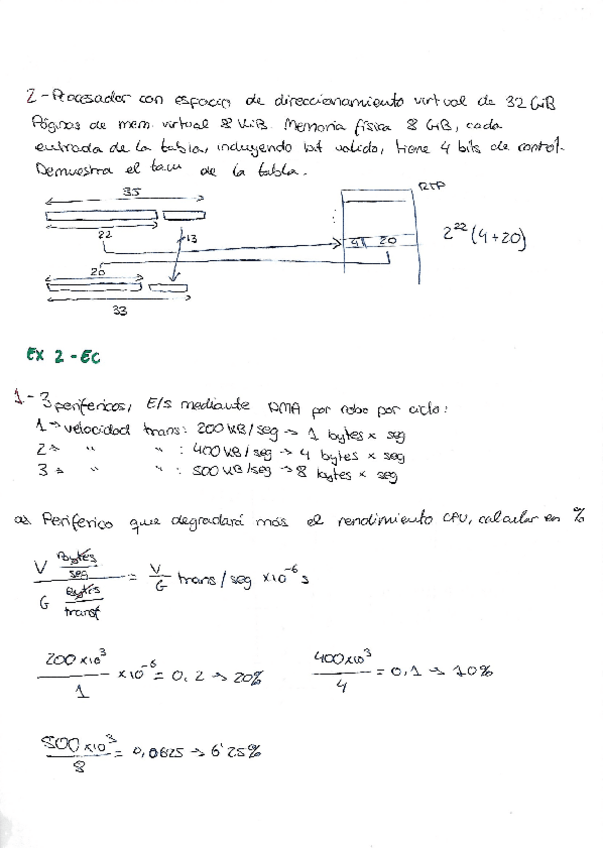 2-Procesador con espacio de direccionamiento virtual de 32 GiB
Páginas de mem. virtual 8 KiB. Memoria física 8 GiB, cada
entrada de la tabla, incluyendo bit valido, tiene 4 bits de control.
Demuestra el tam de la tabla.
35
22
13
20
33
RTP
4 20
2^22 (4+20)
EX 2 - EC
1.- 3 perifericos, E/S mediante DMA por robo por ciclo:
1 → velocidad trans: 200 KB/seg → 1 bytes x seg
2 → " " : 400 KB/seg → 4 bytes x seg
3 = " " : 500 KB/seg → 8 bytes x seg
a) Periferico que degradará más el rendimiento CPU, calcular en %
V Bytes/seg / G Bytes/transf = V/G trans/seg x10^-6 s
200x10^3 / 1 x10^-6 = 0,2 → 20%
400x10^3 / 4 = 0,1 → 10%
500x10^3 / 8 = 0,0625 → 6'25%